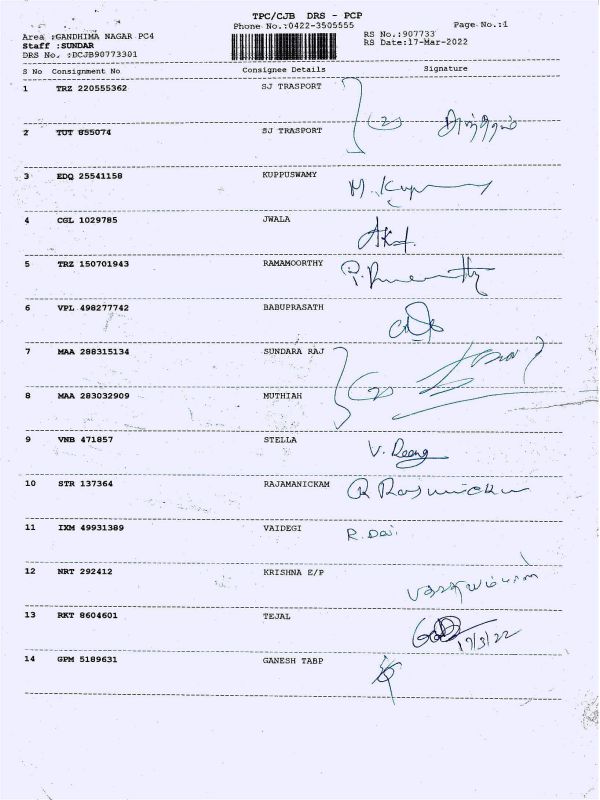 TPC/CJB DRS - PCP
Phone No.:0422-3505555 Page No.:1
Area :GANDHIMA NAGAR PC4 RS No.:907733
Staff :SUNDAR RS Date:17-Mar-2022
DRS No. :DCJB90773301
S No Consignment No Consignee Details Signature
1 TRZ 220555362 SJ TRASPORT
2 TUT 855074 SJ TRASPORT
3 EDQ 25541158 KUPPUSWAMY
4 CGL 1029785 JWALA
5 TRZ 150701943 RAMAMOORTHY
6 VPL 498277742 BABUPRASATH
7 MAA 288315134 SUNDARA RAJ
8 MAA 283032909 MUTHIAH
9 VNB 471857 STELLA
10 STR 137364 RAJAMANICKAM
11 IXM 49931389 VAIDEGI
12 NRT 292412 KRISHNA E/P
13 RKT 8604601 TEJAL 17/3/22
14 GPM 5189631 GANESH TABP